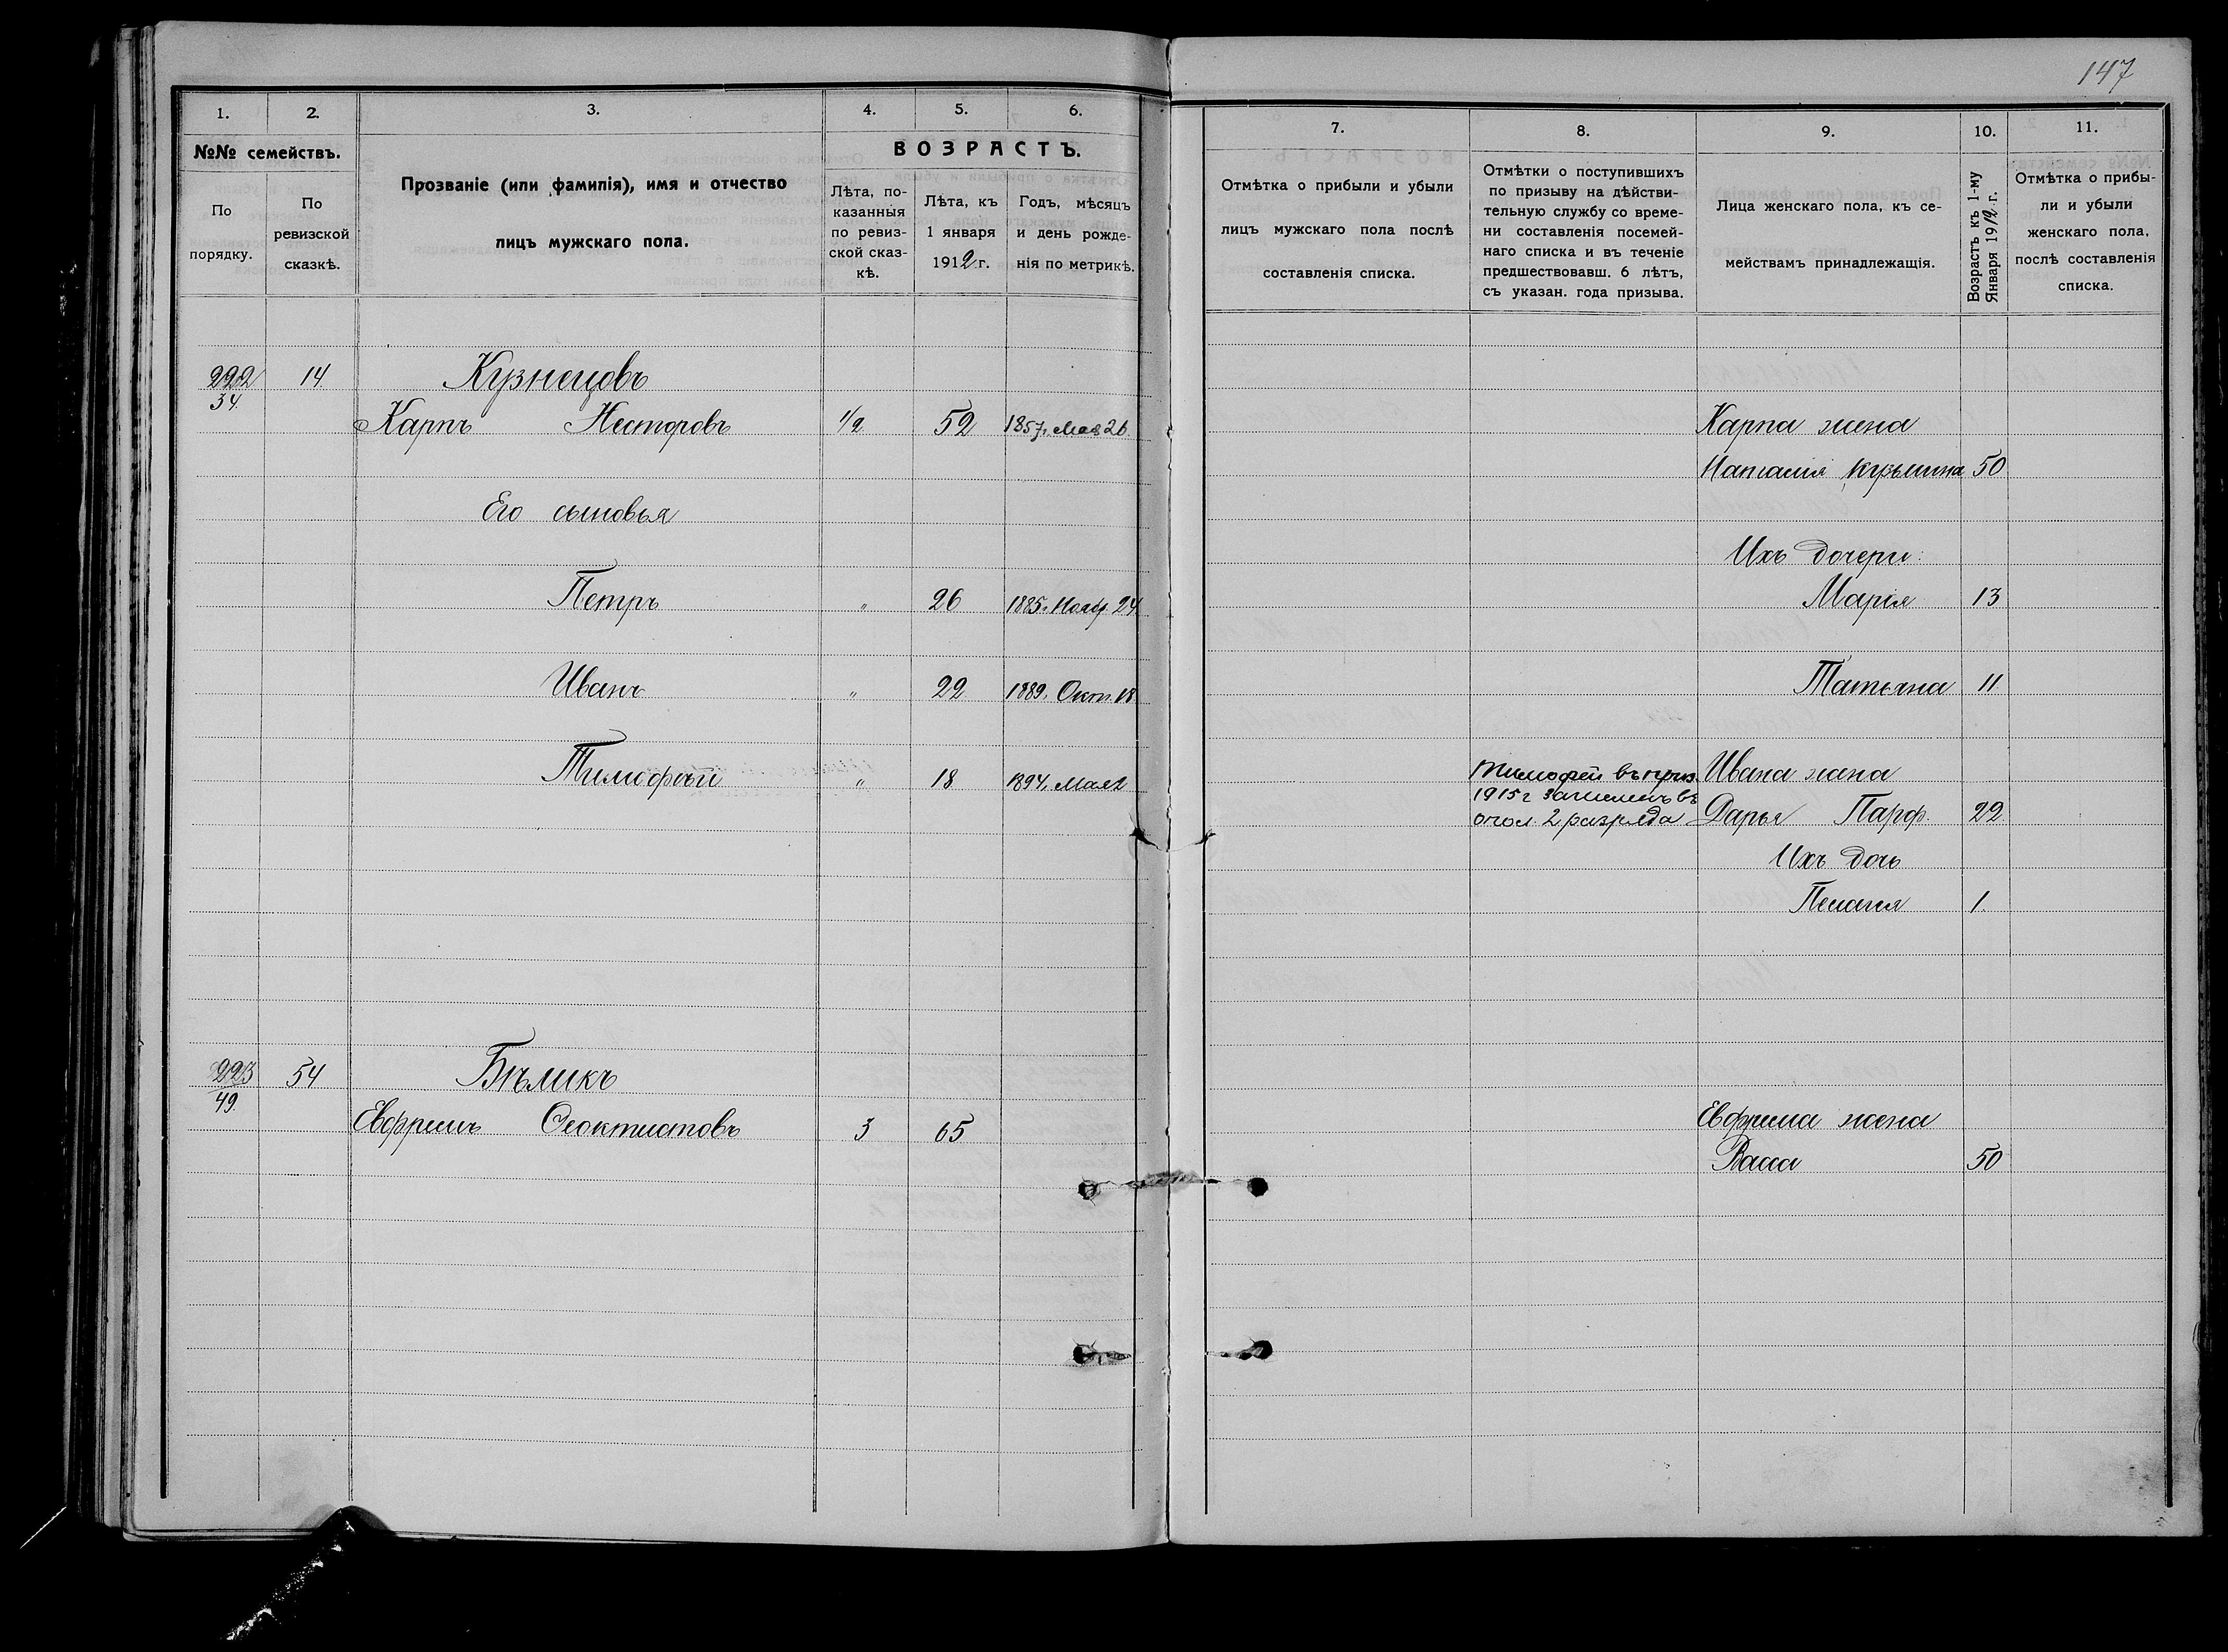 147
1. 2. 3. 4. 5. 6.
№№ семействъ.
По порядку.
По ревизской сказкѣ.
Прозваніе (или фамилія), имя и отчество
лицъ мужскаго пола.
ВОЗРАСТЪ.
Лѣта, по-
казанныя
по ревиз-
ской сказ-
кѣ.
Лѣта, къ
1 января
1912 г.
Годъ, мѣсяцъ
и день рожде-
нія по метрикѣ.
222 14. Кузнецовъ
34.
Карпъ Несторовъ 1/2 52 1857 г. Мая 26
Его сыновья
Петръ " 26 1885 г. Нояб. 24
Иванъ " 22 1889 г. Окт. 18
Тимофѣй " 18 1894 г. Мая 2
223 54 Бѣликъ
49.
Евфремъ Феоктистовъ 3 65
7. 8. 9. 10. 11.
Отмѣтка о прибыли и убыли
лицъ мужскаго пола послѣ
составленія списка.
Отмѣтки о поступившихъ
по призыву на дѣйстви-
тельную службу со време-
ни составленія посемей-
наго списка и въ теченіе
предшествовавш. 6 лѣтъ,
съ указан. года призыва.
Лица женскаго пола, къ се-
мействамъ принадлежащія.
Возрастъ къ 1-му
Января 1912 г.
Отмѣтка о прибы-
ли и убыли
женскаго пола,
послѣ составленія
списка.
Карпа жена
Наталія Кузьмина 50
Ихъ дочери:
Марія 13
Татьяна 11
Тимофей въ приз. Ивана жена
1915 г зачисленъ въ
опол. 2 разряда Дарья Парф. 22.
Ихъ дочь
Пелагія 1.
Евфрема жена
Васса 50